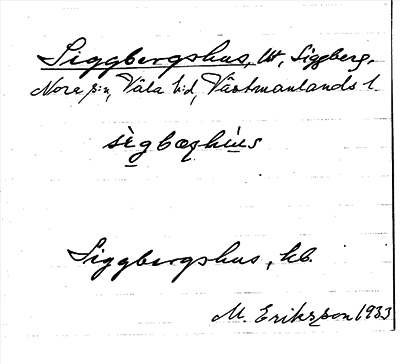 Siggbergshus, lht, Siggberg,
Nora s:n, Våla h:d, Västmanlands l.
sìgbœʂhù̱s
Siggbergshus, kb.
M. Eriksson 1933